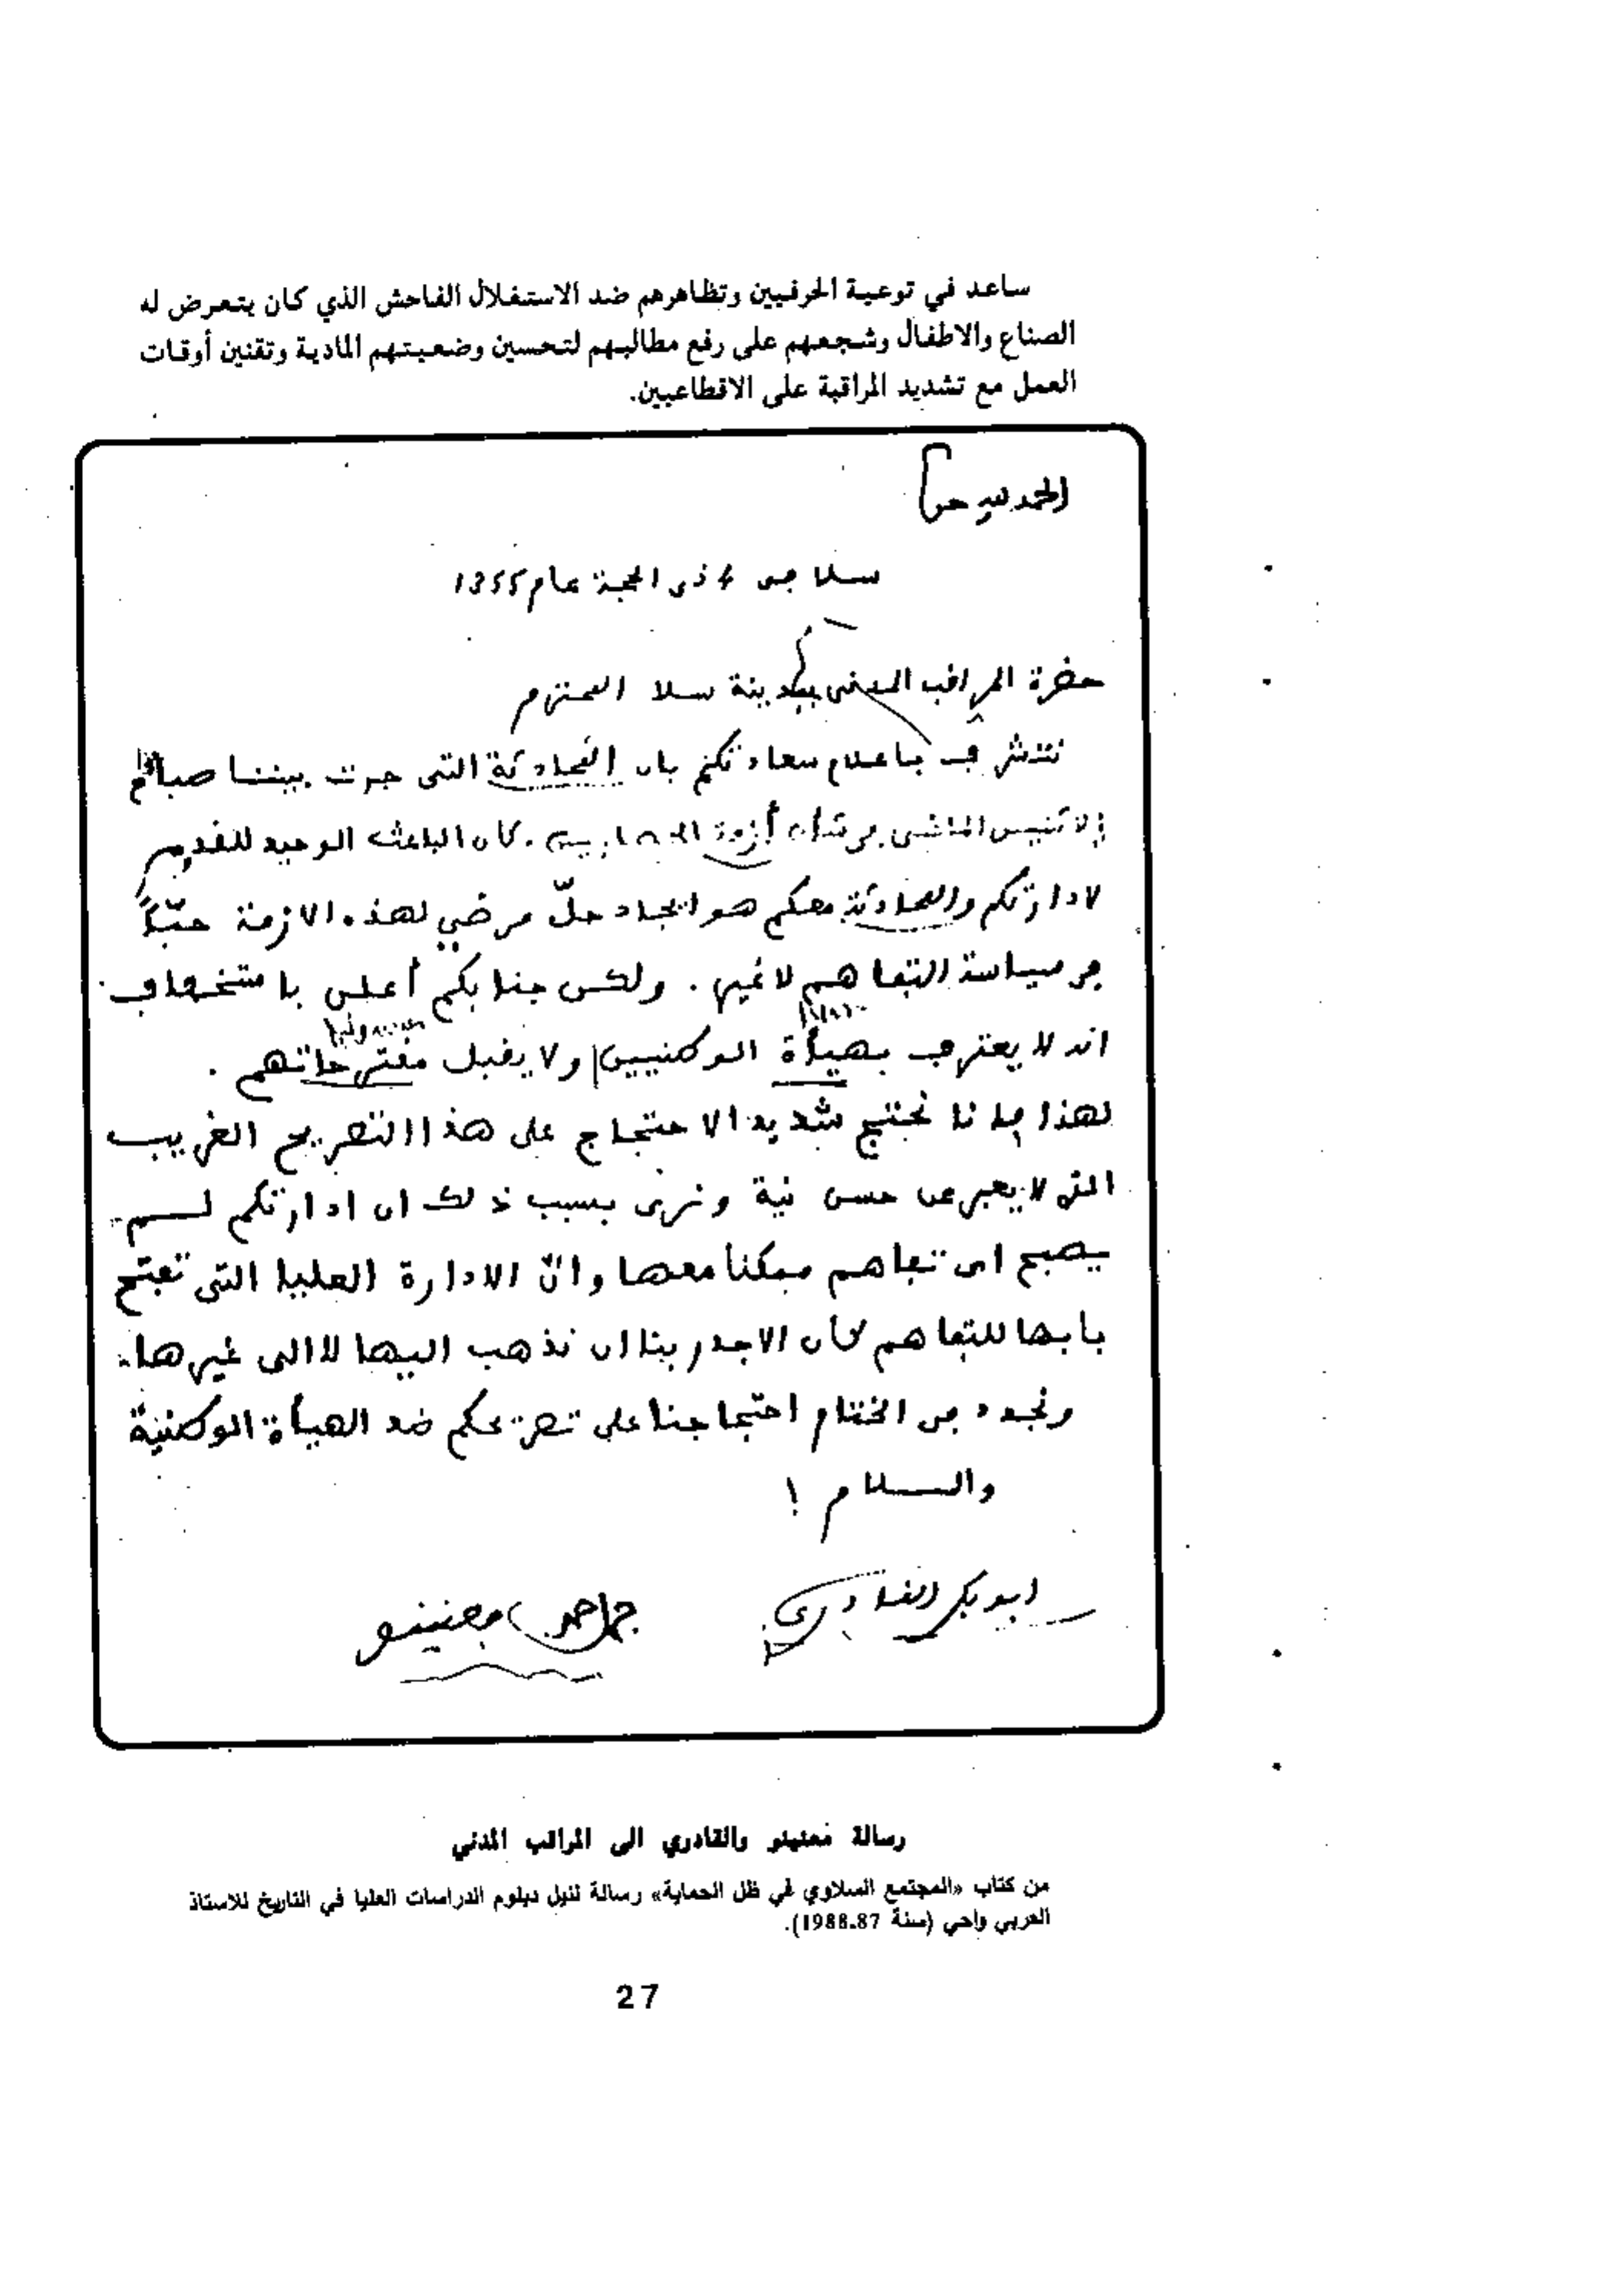 ساعد في توعية الحرفيين وتظاهرهم ضد الاستغلال الفاحش الذي كان يتعرض له
الصناع والاطفال وشجعهم على رفع مطالبهم لتحسين وضعيتهم المادية وتقنين أوقات
العمل مع تشديد المراقبة على الاقطاعيين.
الحمد لله
سلا في 4 ذي الحجة عام 1355
حضرة المراقب المدني بمدينة سلا المحترم
نتشرف باعلام سعادتكم بان المحادثة التي جرت بيننا صباح
الاثنين الماضي في شأن أزمة كان الباعث الوحيد للقدوم
لادارتكم والمحادثة معكم هو ايجاد حلّ مرضي لهذه الازمة حبّاً
في سياسة التفاهم لا غير. ولكن جنابكم أعلن باستخفاف
انه لا يعترف بهيأة الوطنيين ولا يقبل مقترحاتهم.
لهذا فاننا نحتج شديد الاحتجاج على هذا التصريح الغريب
الذي لا يعبر عن حسن نية ونرى بسبب ذلك ان ادارتكم لـــم
يصبح اي تفاهم ممكنا معها وانّ الادارة العليا التي تفتح
بابها للتفاهم كان الاجدر بنا ان نذهب اليها لا الى غيرها.
ونجدد في الختام احتجاجنا على تصريحكم ضد الهيأة الوطنية
والســـلام !
ابو بكر القادري
احمد معنينو
رسالة معنينو والقادري الى المراقب المدني
من كتاب «المجتمع السلاوي في ظل الحماية» رسالة لنيل دبلوم الدراسات العليا في التاريخ للاستاذ
العربي واحي (سنة 1988.87).
27